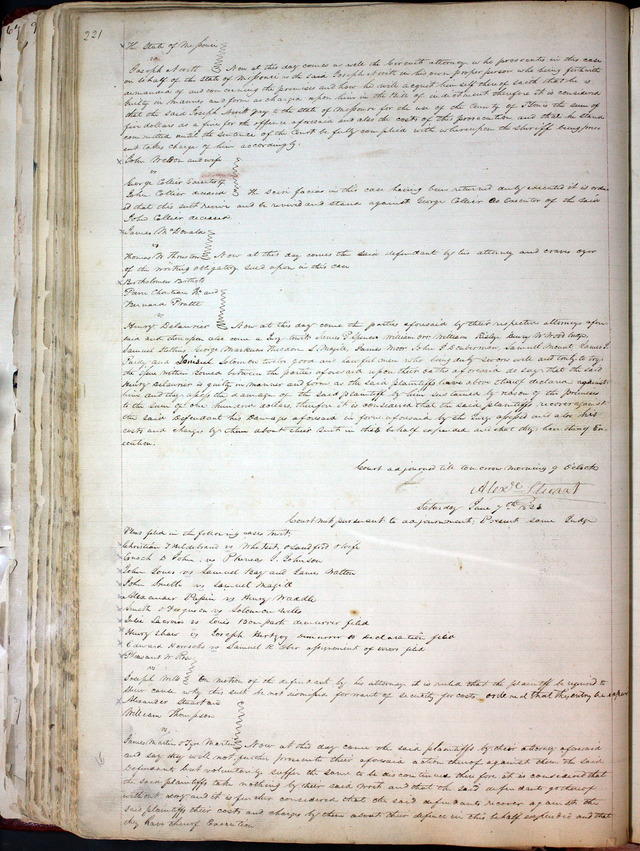 221
The State of Missouri
vs
Joseph Now at this day comes as well the Circuit attorney who prosecutes in this case
on behalf of the State of Missouri as the said Joseph in his own proper person who being forthwith
demanded of and concerning the premises and how he will acquit himself thereof saith that he is
guilty in manner and form as charged upon him in the bill of indictment therefore it is considered
that the said Joseph pay to the State of Missouri for the use of the County of the sum of
five dollars as a fine for the offence aforesaid and also the costs of this prosecution and that he stand
committed until the sentence of the Court be fully complied with whereupon the Sheriff being pres
ent takes charge of him accordingly.
John and wife
vs
George Collier Executor of
John Collier deceased The Scire facias in this case having been returned duly executed it is order
ed that this suit revive and be revived and stand against George Collier as Executor of the said
John Collier deceased
James McDonald
vs
Thomas W. Thruston Now at this day comes the said defendant by his attorney and craves oyer
of the writing obligatory sued upon in this case
Bartholomew Berthold
Pierre Chouteau Jr. and
Bernard Pratte
vs
Henry Delaurier Now at this day come the parties aforesaid by their respective attorneys afore
said and thereupon also come a Jury to wit: Spencer William Orr William Henry W.
Samuel George Theodore L. Magill James Moor John P. Samuel Mount
and Solomon twelve good and lawful men who being duly sworn well and truly to try
the issue joined between the parties aforesaid upon their oaths aforesaid do say that the said
Henry Delaurier is guilty in manner and form as the said plaintiffs have above thereof declared against
him and they assess the damages of the said plaintiffs by them sustained by reason of the premises
to the sum of one hundred dollars, therefore it is considered that the said plaintiffs recover against
the said Defendant his damages aforesaid in form aforesaid by the Jury assessed and also his
costs and charges by them about their suit in this behalf expended and that they have thereof Ex
ecution.
Court adjourned till tomorrow morning 9 Oclock
Alexr. Stuart
Saturday June 7th
Court met pursuant to adjournment, Present same Judge
Pleas filed in the following cases towit;
Christian Hildebrand vs Sandford & wife
Enoch D. John vs Phineas J. Johnson
John Jones vs Samuel Hay and James Walton
John Smith vs Samuel Magill
Alexander vs Henry Waddle
Smith & Ferguson vs Solomon
Julie vs Louis demurrer filed
Henry Shaw vs Joseph Hertzog demurrer to declaration filed
Edward vs Samuel R. Ober assignment of errors filed
Pleasant W. Rose
vs
Joseph On motion of the defendant by his attorney it is ruled that the plaintiff be required to
shew cause why this suit be not dismissed for want of security for costs,
Alexander Stuart and
William Thompson
vs
James Martin & Martin Now at this day came the said plaintiffs by their attorney aforesaid
and say they will not further prosecute their aforesaid action thereof against them the said
Defendants but voluntarily suffer the same to be discontinued therefore it is considered that
the said plaintiffs take nothing by their said Writ and that the said defendants go thereof
without day and it is further considered that the said defendants recover against the
said plaintiffs their costs and charges by them about their defence in this behalf expended and that
they have thereof Execution